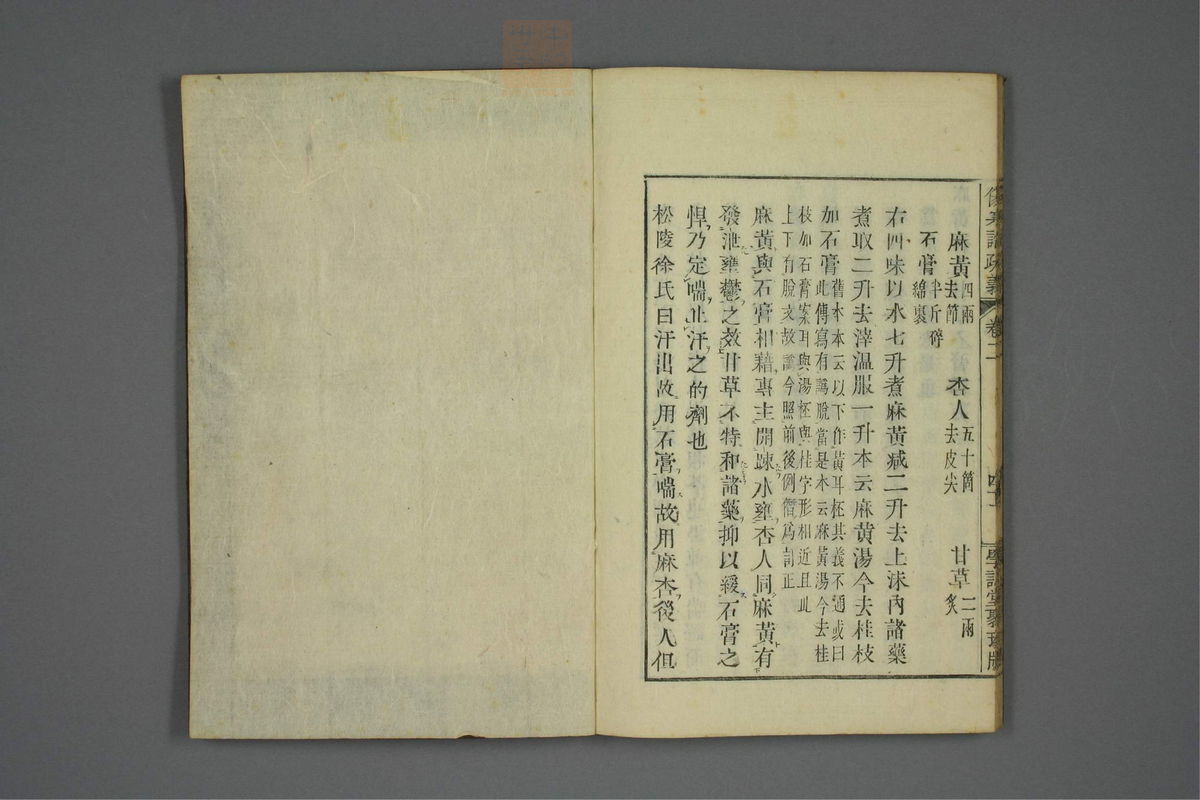 傷寒論疏義 卷二 學訓堂聚珍版
麻黃四兩去節 杏人五十箇去皮尖 甘草二兩炙
石膏半斤碎綿裹
右四味以水七升煮麻黃減二升去上沫內諸藥
煮取二升去滓溫服一升本云麻黃湯今去桂枝
加石膏舊本本云以下作黃耳杯其義不通或曰此傳寫有譌脫當是本云麻黃湯今去桂
枝加石膏案耳與湯杯與桂字形相近且此上下有脫文故譌今照前後例僭爲訂正
麻黃與石膏相藉專主開疎水壅杏人同麻黃有
發泄壅鬱之效甘草不特和諸藥抑以緩石膏之
悍乃定喘止汗之的劑也
松陵徐氏曰汗出故用石膏喘故用麻杏後人但